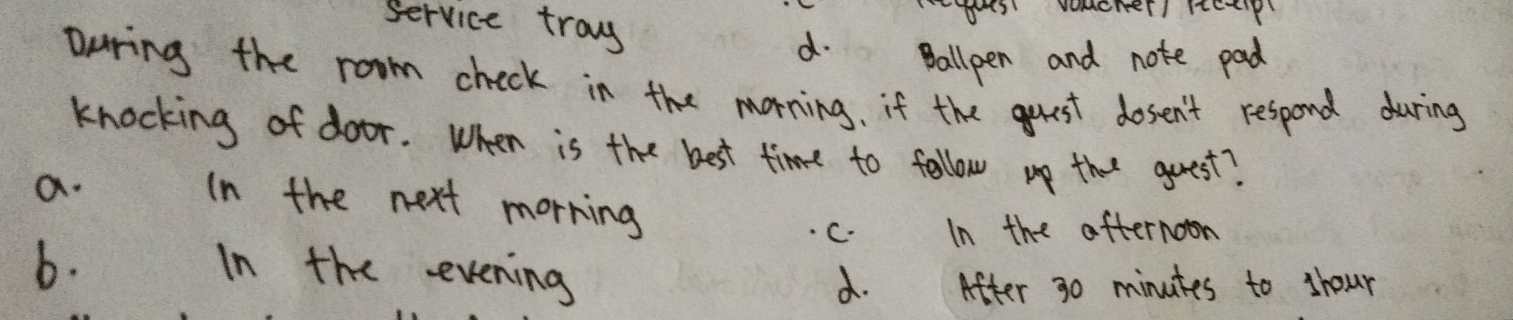 Service tray
c. Request voucher/ receipt
d. Ballpen and note pad
During the room check in the morning, if the guest dosen't respond during
knocking of door. When is the best time to follow up the guest?
a. In the next morning
c. In the afternoon
b. In the evening
d. After 30 minutes to 1hour